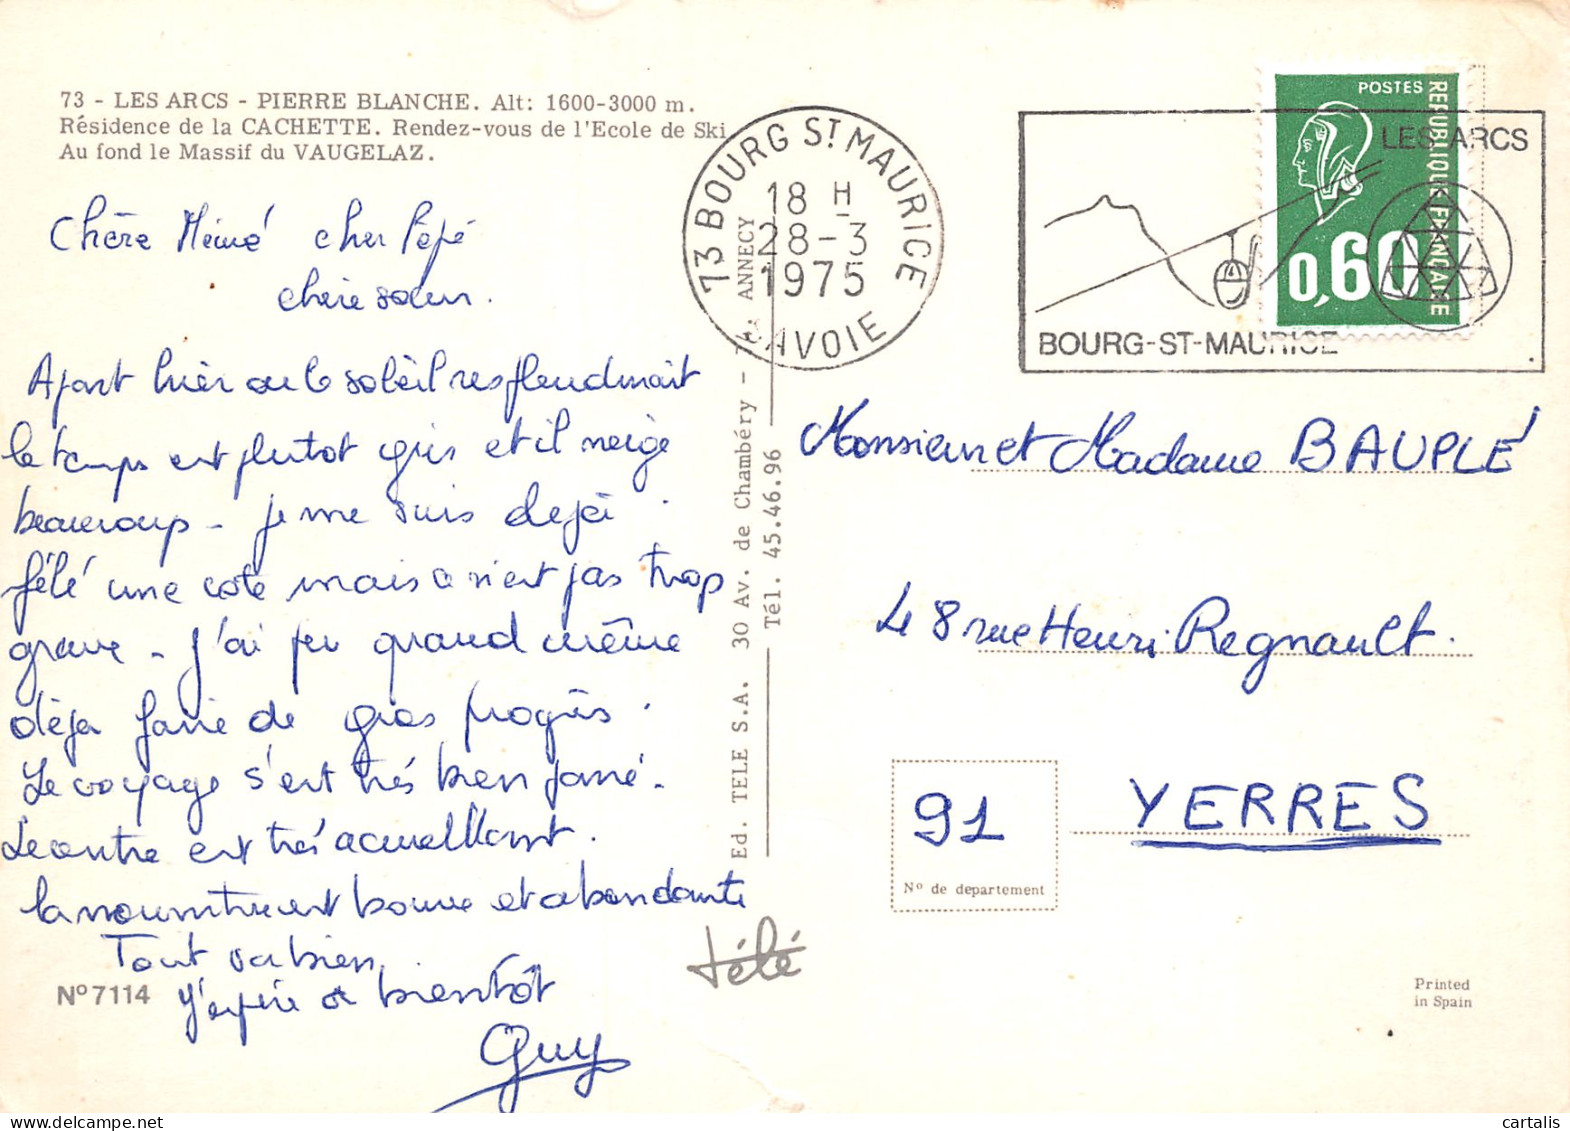 73 - LES ARCS - PIERRE BLANCHE. Alt: 1600-3000 m.
Résidence de la CACHETTE. Rendez-vous de l'Ecole de Ski
Au fond le Massif du VAUGELAZ.
Chère Mémé cher Pépé
chère soeur.
Apart hier ou le soleil resplendissait
le temps est plutot gris et il neige
beaucoup - je me suis dejà
félé une cote mais ce n'est pas trop
grave - j'ai pu quand même
dèja faire de gros progrès.
Le voyage s'est trés bien passé.
Le centre est trés acueillant.
la nourriture est bonne et abondante
Tout va bien
J'espère a bientôt
Guy
N° 7114
73 BOURG ST MAURICE
18 H
28-3
1975
SAVOIE
POSTES
REPUBLIQUE FRANÇAISE
0,60
LES ARCS
BOURG-ST-MAURICE
Ed. TELE S.A. 30 Av. de Chambéry - 74 ANNECY
Tél. 45.46.96
télé
Monsieur et Madame BAUPLÉ
48 rue Henri Regnault.
91
YERRES
N° de departement
Printed
in Spain
cartalis